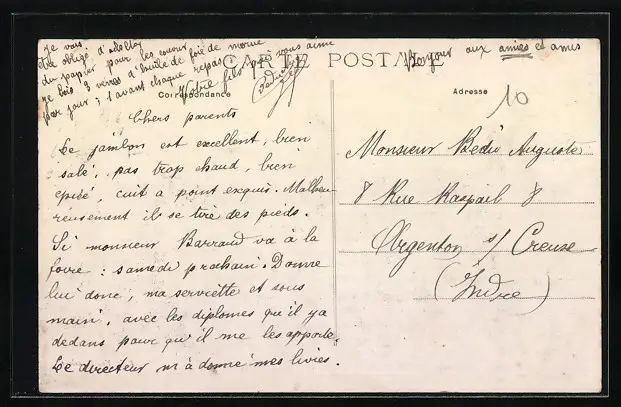 je vais
être obligé d'acheter
du papier pour les cours
je bois 3 verres d'huile de foie de morue
par jour ; 1 avant chaque repas
Votre fils qui vous aime
CARTE POSTALE
Bonjour aux amies et amis
Correspondance
Adresse
10
Chers parents
Le jambon est excellent, bien
salé, pas trop chaud, bien
epicé, cuit a point exquis. Malheu-
reusement il se tire des pieds.
Si monsieur Barraud va à la
foire : samedi prochain. Donne
lui donc, ma serviette et sous
main, avec les diplomes qu'il ya
dedans pour qu'il me les apporte.
Le directeur m'a donné mes livres.
Monsieur Bedu Auguste
8 Rue Raspail 8
Argenton s/ Creuse
(Indre)